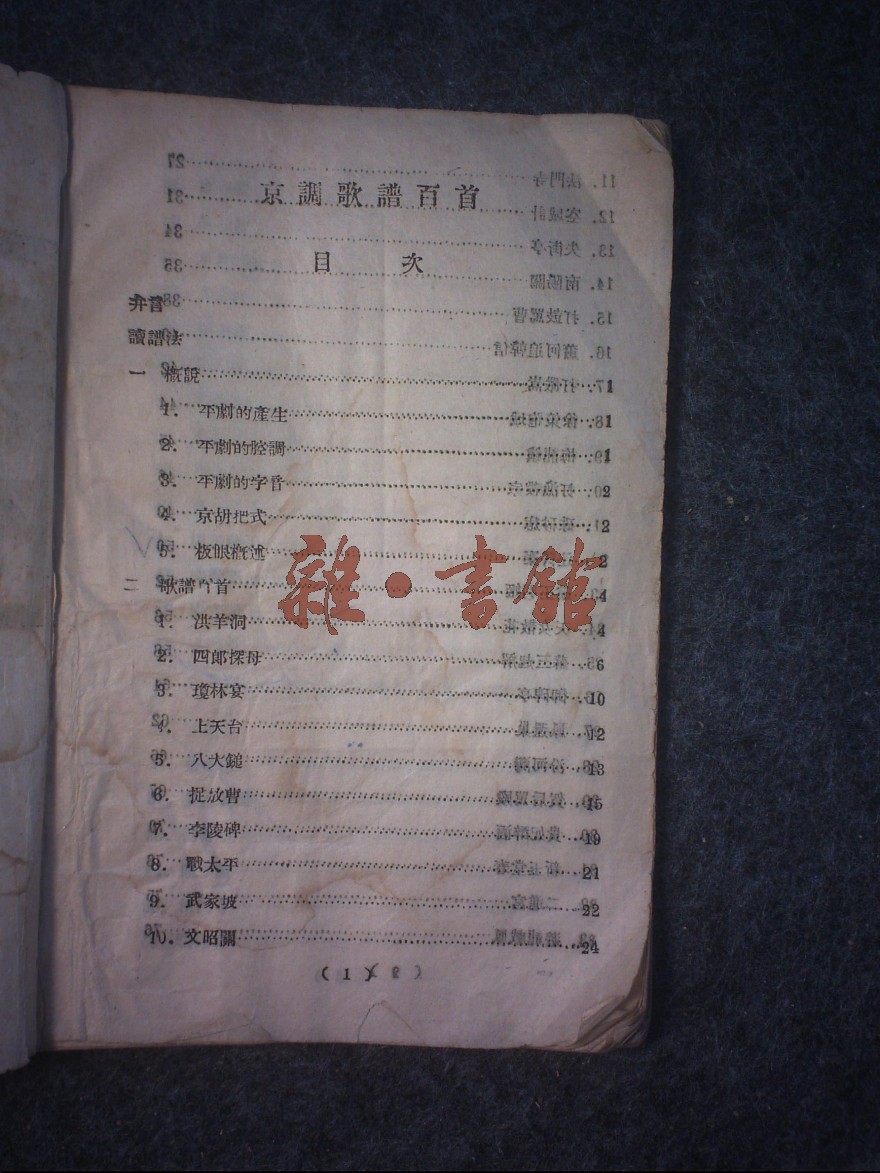 京調歌譜百首
目 次
弁言
讀譜法
一 概說
1. 平劇的產生 1
2. 平劇的腔調 1
3. 平劇的字音 2
4. 京胡把式 2
5. 板眼概述 2
二 歌譜百首 4
1. 洪羊洞 4
2. 四郎探母 6
3. 瓊林宴 10
4. 上天台 12
5. 八大鎚 13
6. 捉放曹 15
7. 李陵碑 19
8. 戰太平 21
9. 武家坡 22
10. 文昭關 24
( 1 )
雜·書館